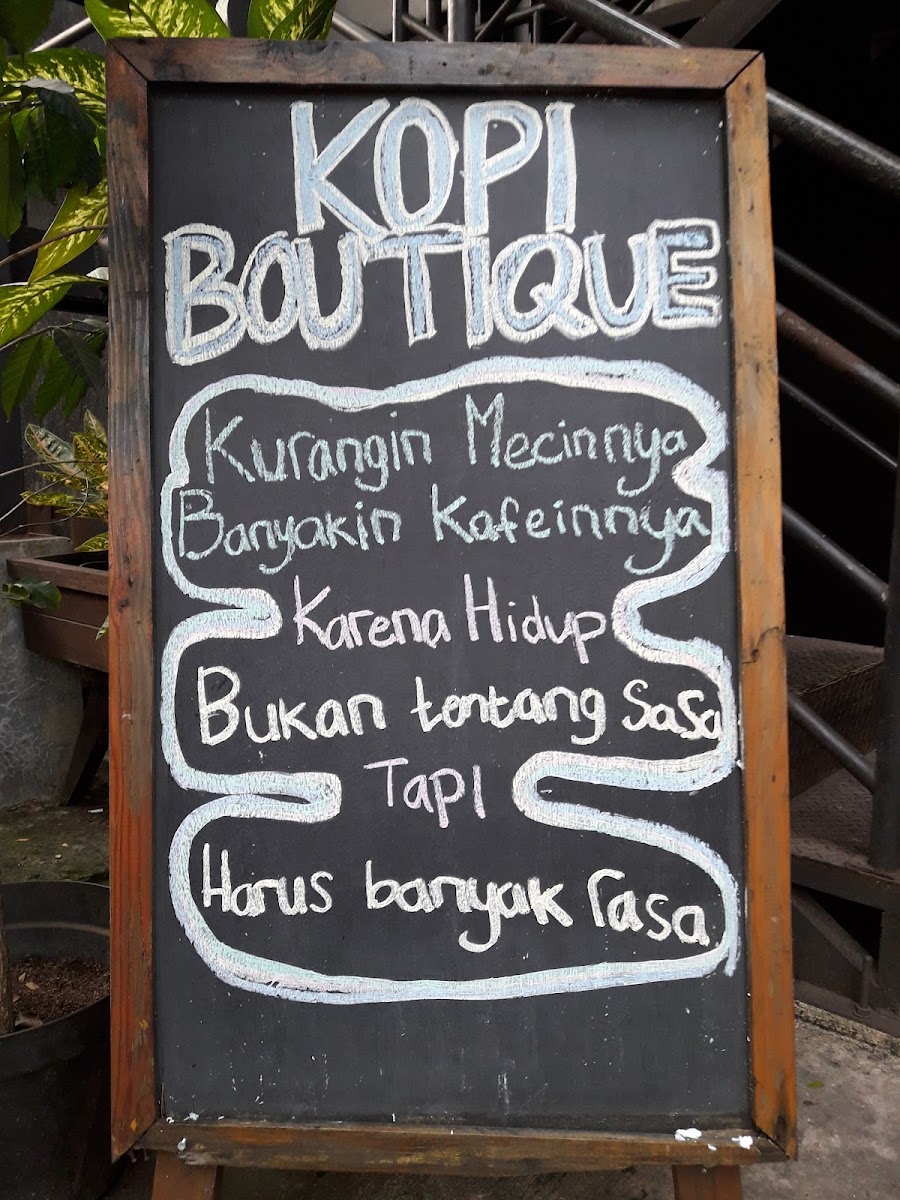 KOPI
BOUTIQUE
Kurangin Mecinnya
Banyakin Kafeinnya
Karena Hidup
Bukan tentang SaSa
Tapi
Harus banyak rasa